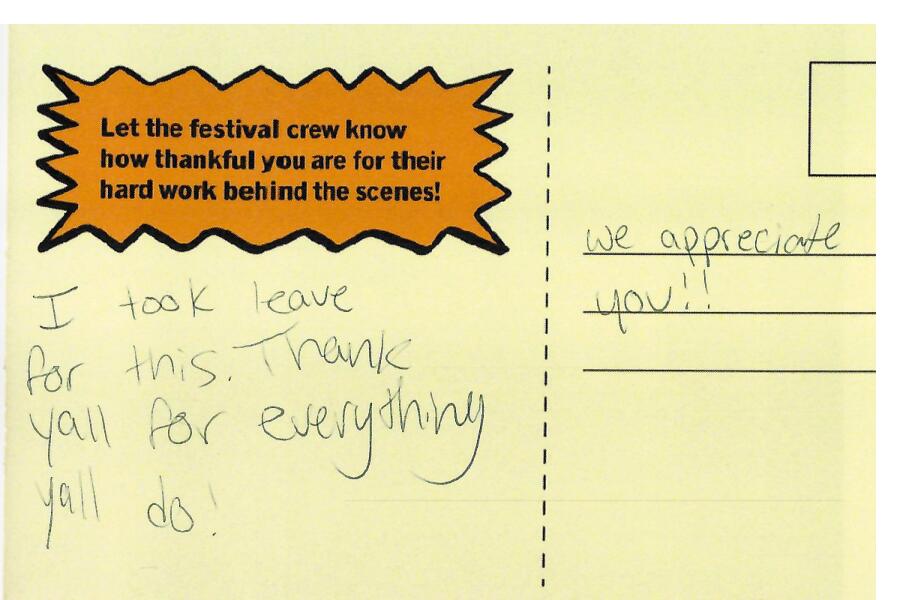 Let the festival crew know
how thankful you are for their
hard work behind the scenes!
I took leave
for this. Thank
yall for everything
yall do!
we appreciate
you!!